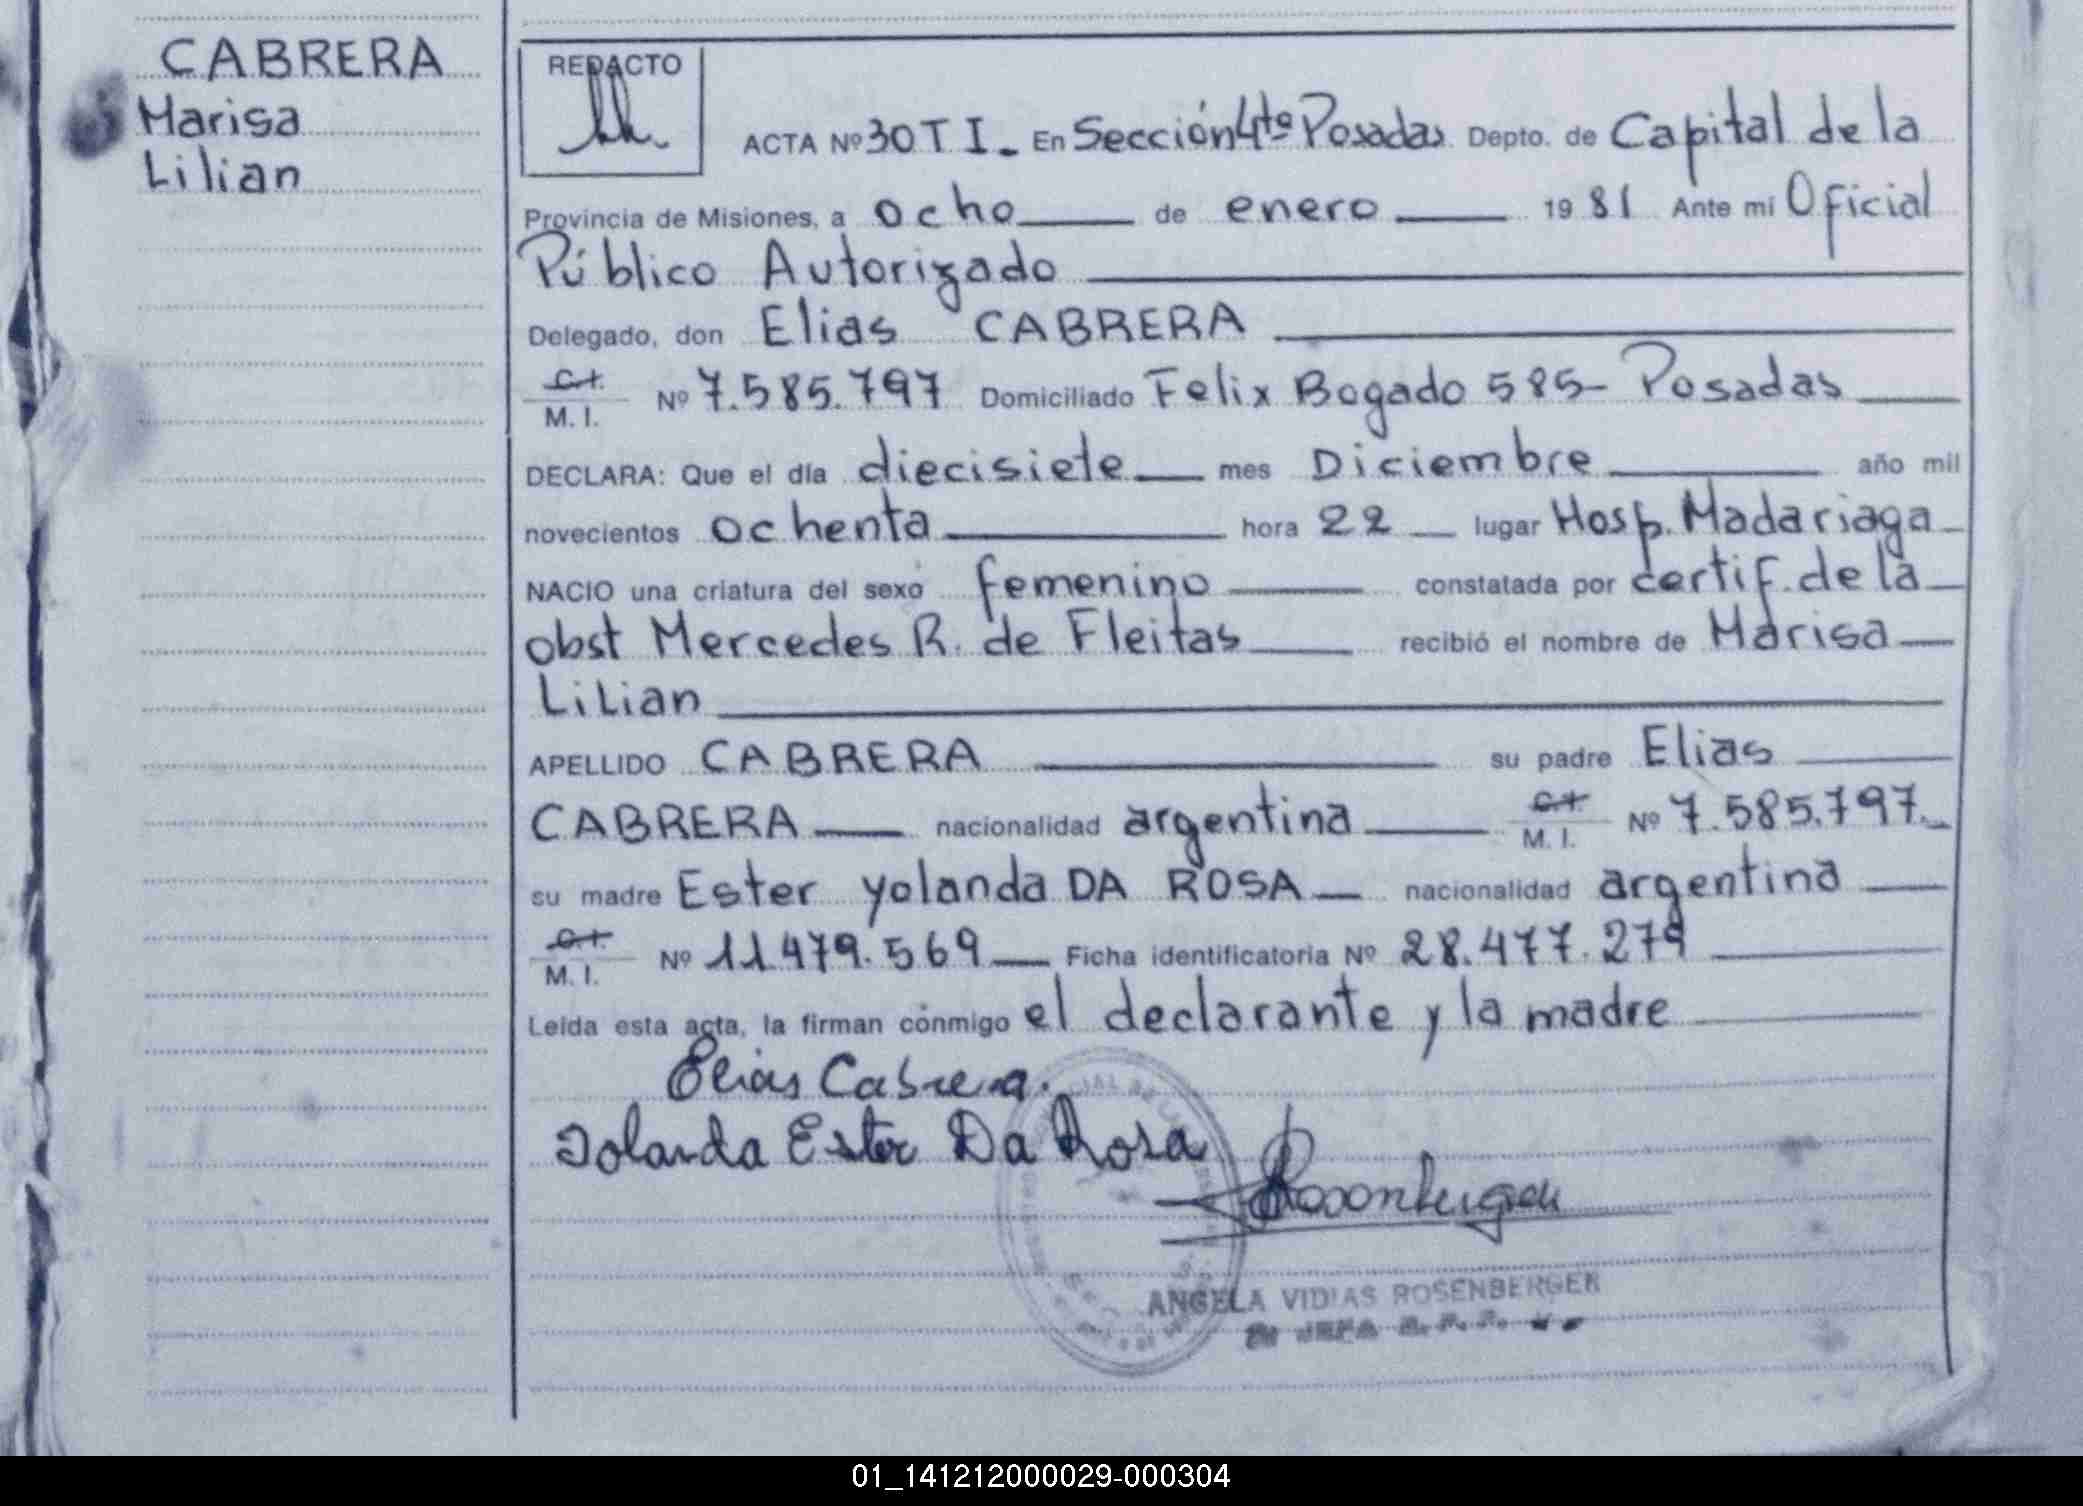 CABRERA
Marisa
Lilian
REDACTO
ACTA Nº 30 T I. En Sección 4ta Posadas Depto. de Capital de la
Provincia de Misiones, a ocho de enero 1981 Ante mi Oficial
Público Autorizado
Delegado, don Elias CABRERA
C.I.
M. I. Nº 7.585.797 Domiciliado Felix Bogado 585- Posadas
DECLARA: Que el día diecisiete mes Diciembre año mil
novecientos ochenta hora 22 lugar Hosp. Madariaga
NACIO una criatura del sexo femenino constatada por certif. de la
obst Mercedes R. de Fleitas recibió el nombre de Marisa
Lilian
APELLIDO CABRERA su padre Elias
CABRERA nacionalidad argentina C.I. M. I. Nº 7.585.797.
su madre Ester Yolanda DA ROSA nacionalidad argentina
C.I.
M. I. Nº 11479.569 Ficha identificatoria Nº 28.477.279
Leída esta acta, la firman conmigo el declarante y la madre
Elias Cabrera.
Iolanda Ester Da Rosa
ANGELA VIDIAS ROSENBERGER
JEFA
01_141212000029-000304